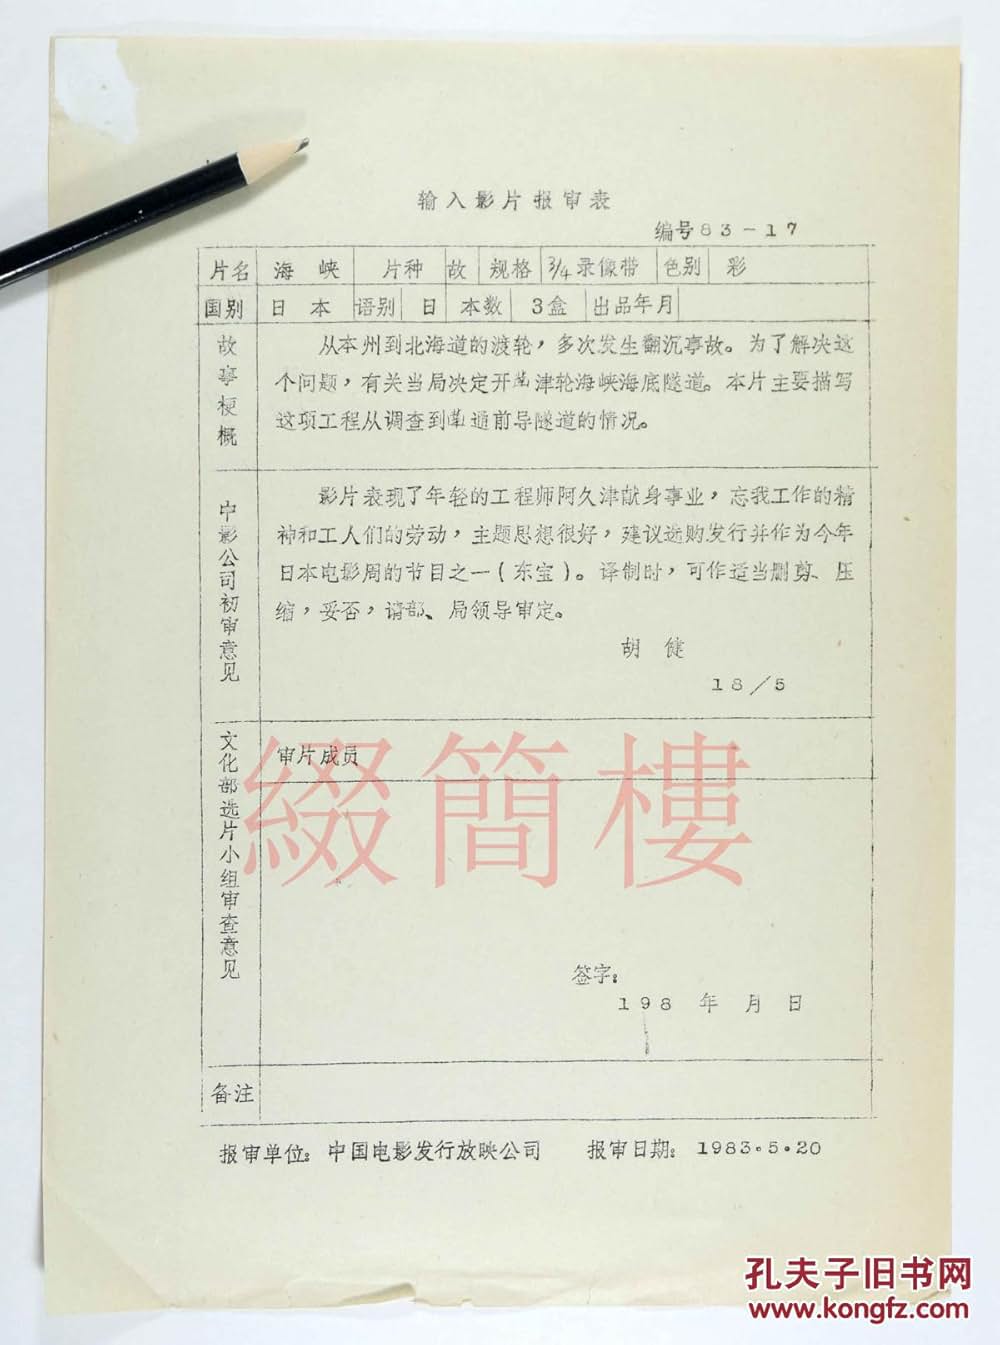 输入影片报审表
编号83-17
片名 海峡 片种 故 规格 3/4录像带 色别 彩
国别 日本 语别 日 本数 3盒 出品年月
故事梗概
从本州到北海道的渡轮，多次发生翻沉事故。为了解决这
个问题，有关当局决定开凿津轮海峡海底隧道。本片主要描写
这项工程从调查到凿通前导隧道的情况。
中影公司初审意见
影片表现了年轻的工程师阿久津献身事业，忘我工作的精
神和工人们的劳动，主题思想很好，建议选购发行并作为今年
日本电影周的节目之一（东宝）。译制时，可作适当删剪、压
缩，妥否，请部、局领导审定。
胡健
18/5
文化部选片小组审查意见
审片成员
綴簡樓
签字：
198 年 月 日
备注
报审单位：中国电影发行放映公司 报审日期：1983.5.20
孔夫子旧书网
www.kongfz.com